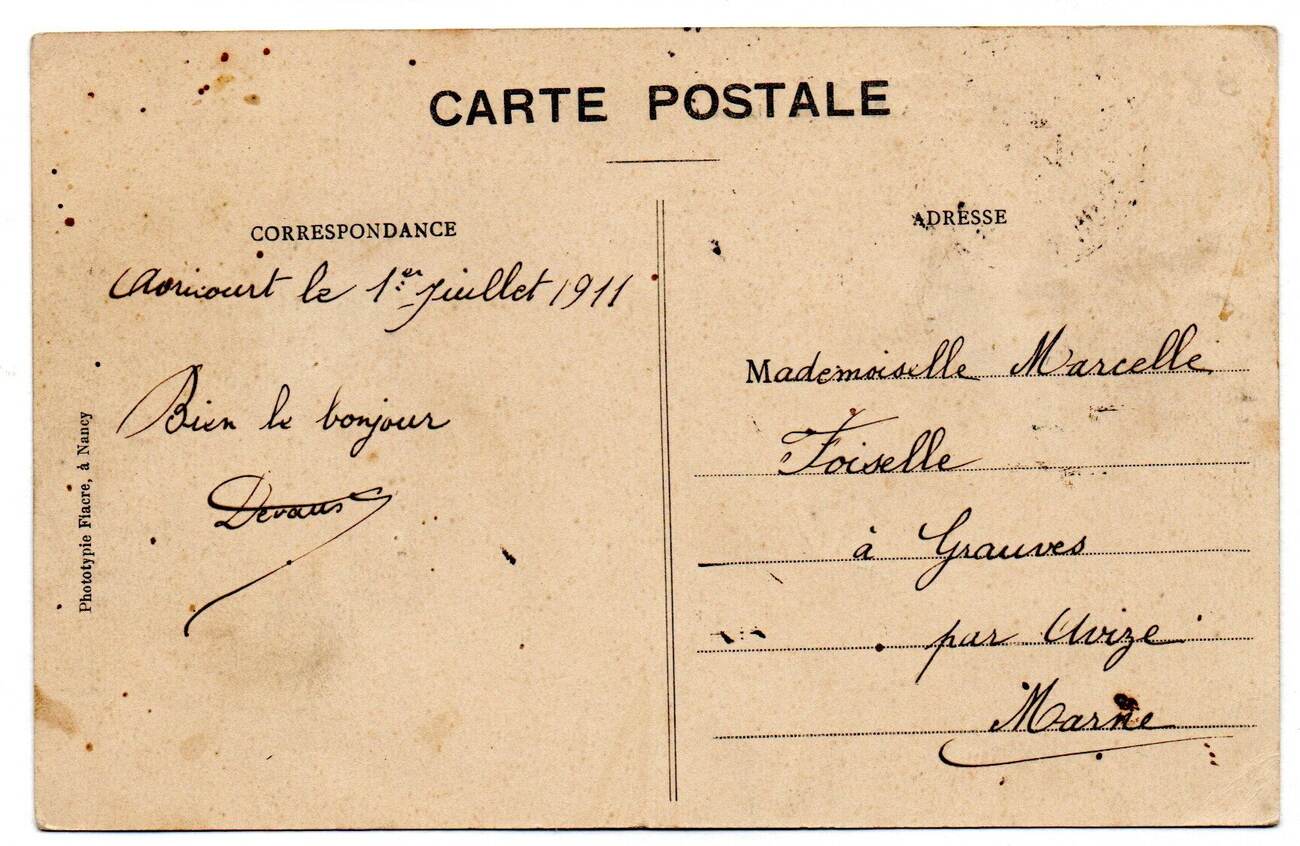 CARTE POSTALE
CORRESPONDANCE
Avricourt le 1er Juillet 1911
Bien le bonjour
Devaux
Phototypie Fiacre, à Nancy
ADRESSE
Mademoiselle Marcelle
Foiselle
à Grauves
par Avize
Marne